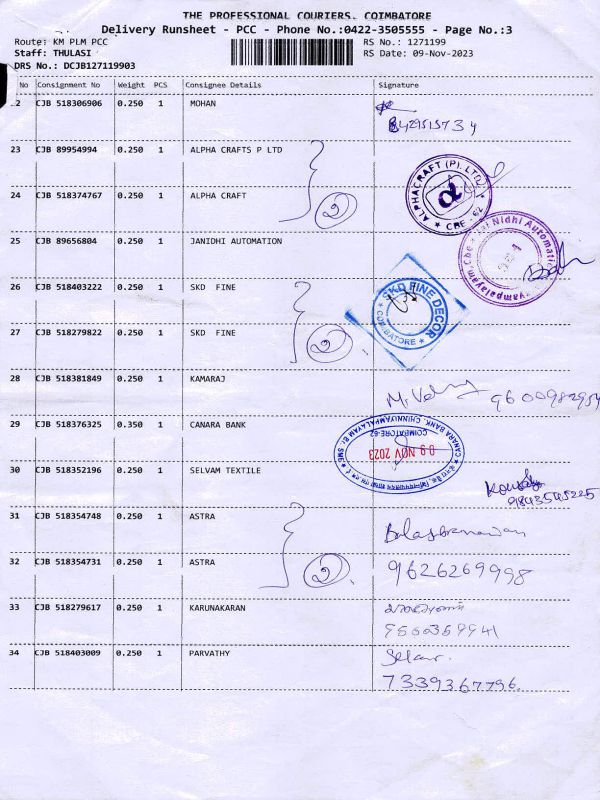 THE PROFESSIONAL COURIERS. COIMBATORE
Delivery Runsheet - PCC - Phone No.:0422-3505555 - Page No.:3
Route: KM PLM PCC RS No.: 1271199
Staff: THULASI RS Date: 09-Nov-2023
DRS No.: DCJB127119903
No Consignment No Weight PCS Consignee Details Signature
CJB 518306906 0.250 1 MOHAN
23 CJB 89954994 0.250 1 ALPHA CRAFTS P LTD
24 CJB 518374767 0.250 1 ALPHA CRAFT
2
ALPHACRAFT (P). LTD. CBE - 62
25 CJB 89656804 0.250 1 JANIDHI AUTOMATION
Nidhi Automation
26 CJB 518403222 0.250 1 SKD FINE
SKD FINE DECOR
COIMBATORE
27 CJB 518279822 0.250 1 SKD FINE
2
28 CJB 518381849 0.250 1 KAMARAJ
29 CJB 518376325 0.350 1 CANARA BANK
CANARA BANK, CHINNIYAMPALAYAM Br. SME
COIMBATORE-62
09 NOV 2023
30 CJB 518352196 0.250 1 SELVAM TEXTILE
9843545225
31 CJB 518354748 0.250 1 ASTRA
32 CJB 518354731 0.250 1 ASTRA
2
9626269998
33 CJB 518279617 0.250 1 KARUNAKARAN
9500359941
34 CJB 518403009 0.250 1 PARVATHY
7339367796